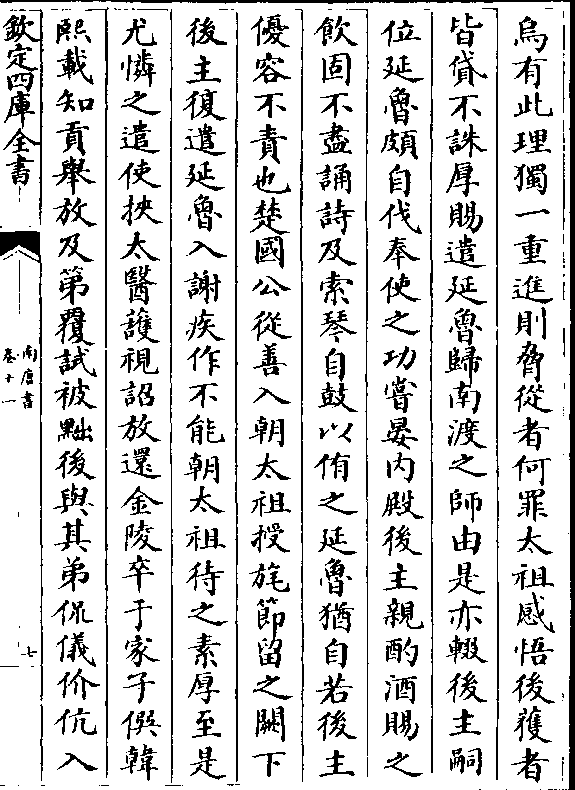 烏有此理獨一重進則脅從者何罪太祖感悟後獲者
皆貸不誅厚賜遣延魯歸南渡之師由是亦輟後主嗣
位延魯頗自伐奉使之功嘗晏内殿後主親酌酒賜之
飲固不盡誦詩及索琴自鼓以侑之延魯猶自若後主
優容不責也楚國公從善入朝太祖授旄節留之闕下
後主復遣延魯入謝疾作不能朝太祖待之素厚至是
尤憐之遣使挾太醫護視詔放還金陵卒于家子僎韓
熙載知貢舉放及第覆試被黜後與其弟侃儀价伉入
欽定四庫全書
南唐書
卷十一
七